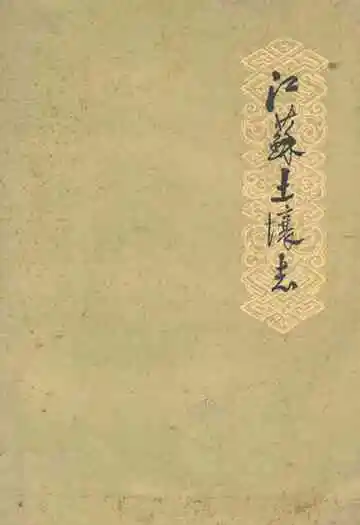 江蘇土壤志